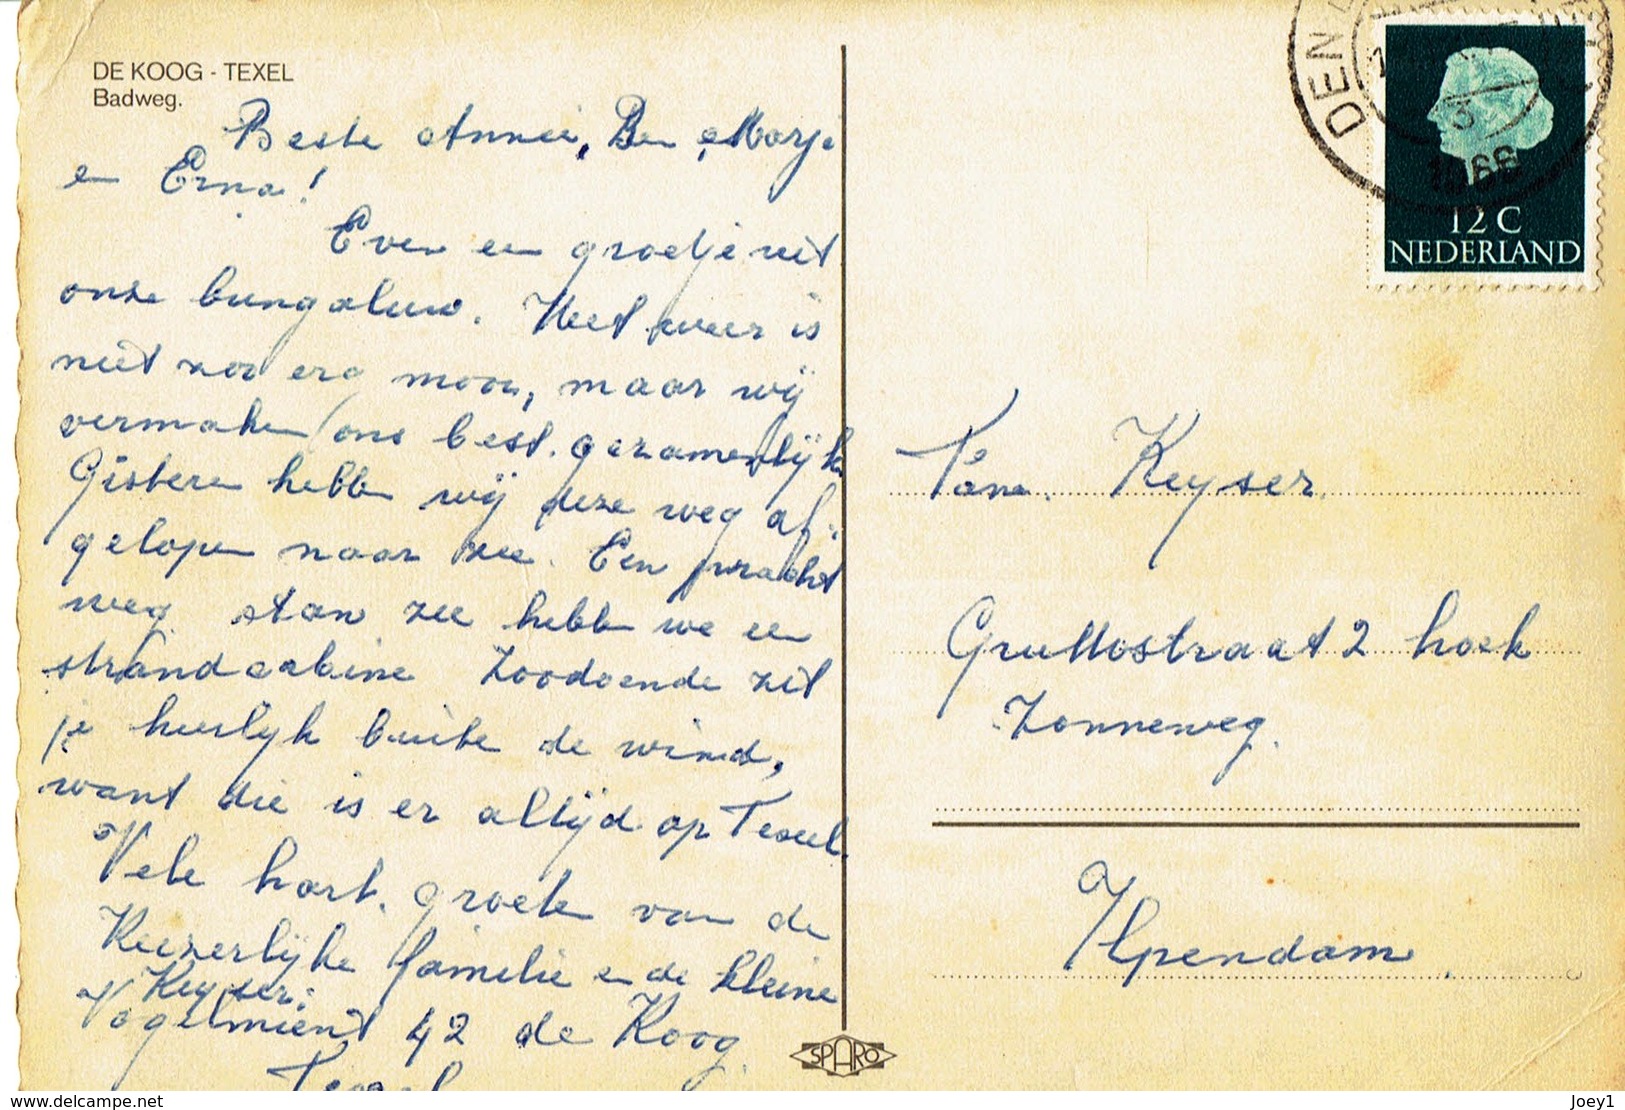 DE KOOG - TEXEL
Badweg.
Beste Annie, Ben, Marja
en Erna!
Even een groetje uit
onze bungaluw. Het weer is
niet zoo erg mooi, maar wij
vermaken ons best. gezamenlijk
Gisteren hebben wij deze weg af-
gelopen naar zee. Een pracht
weg. aan zee hebben we een
strandcabine Zoodoende zit
je heerlijk buiten de wind,
want die is er altijd op Texel.
Vele hart. groeten van de
Keizerlijke familie en de kleine
Keyser.
Vogelmient 42 de Koog.
Texel
DEN
3
1966
12 C
NEDERLAND
Fam. Keyser
Gruttostraat 2 hoek
Zonneweg.
Ilpendam.
SPARO
www.delcampe.net
Joey1